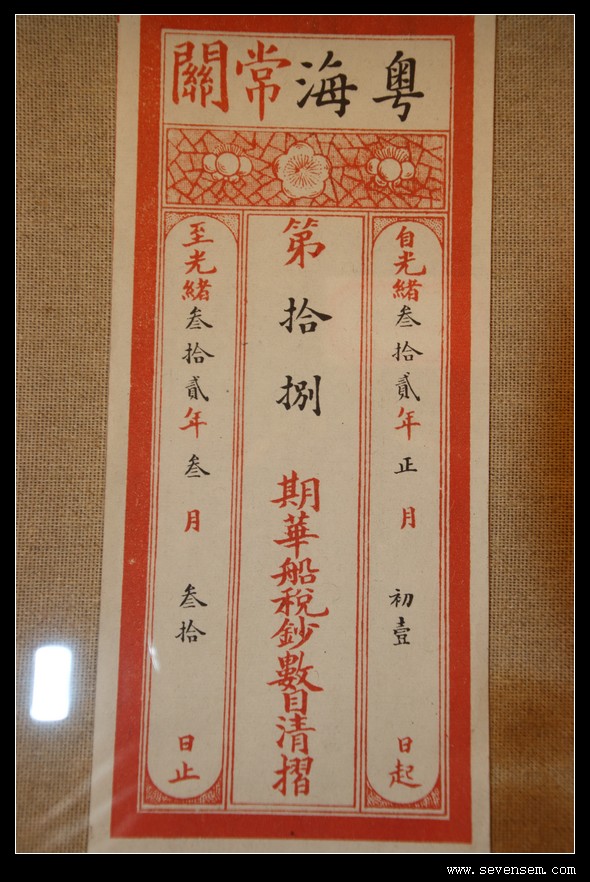 粤海常關
自光緒叁拾貳年正月初壹日起
第拾捌期華船稅鈔數目清摺
至光緒叁拾貳年叁月叁拾日止
www.sevensem.com